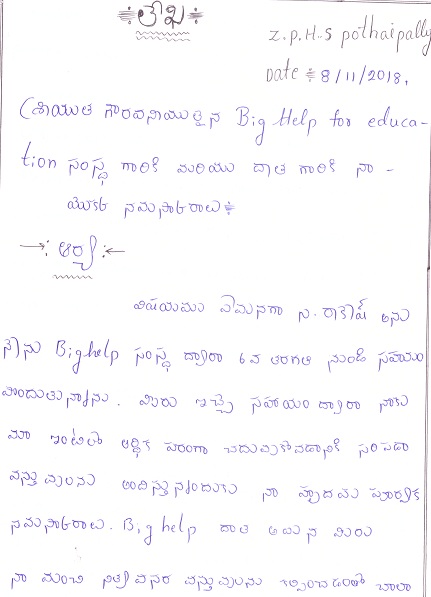 లేఖ
Z.P.H.S pothaipally
Date : 8/11/2018,
శ్రీయుత గౌరవనీయులైన Big Help for educa-
tion సంస్థ గారికి మరియు దాత గారికి నా -
యొక్క నమస్కారాలు
ఆర్య
విషయము ఏమనగా న. రాకేష్ అను
నేను Bighelp సంస్థ ద్వారా 6వ తరగతి నుండి సహాయం
పొందుతున్నాను. మీరు ఇచ్చే సహాయం ద్వారా నాకు
మా ఇంటిలో ఆర్థిక పరంగా చదువుకోవడానికి సరిపడా
వస్తువులను అందిస్తున్నందుకు నా హృదయ పూర్వక
నమస్కారాలు. Big help దాత అయిన మీరు
నా మంచి నిత్యవసర వస్తువులను కల్పించడంతో చాలా